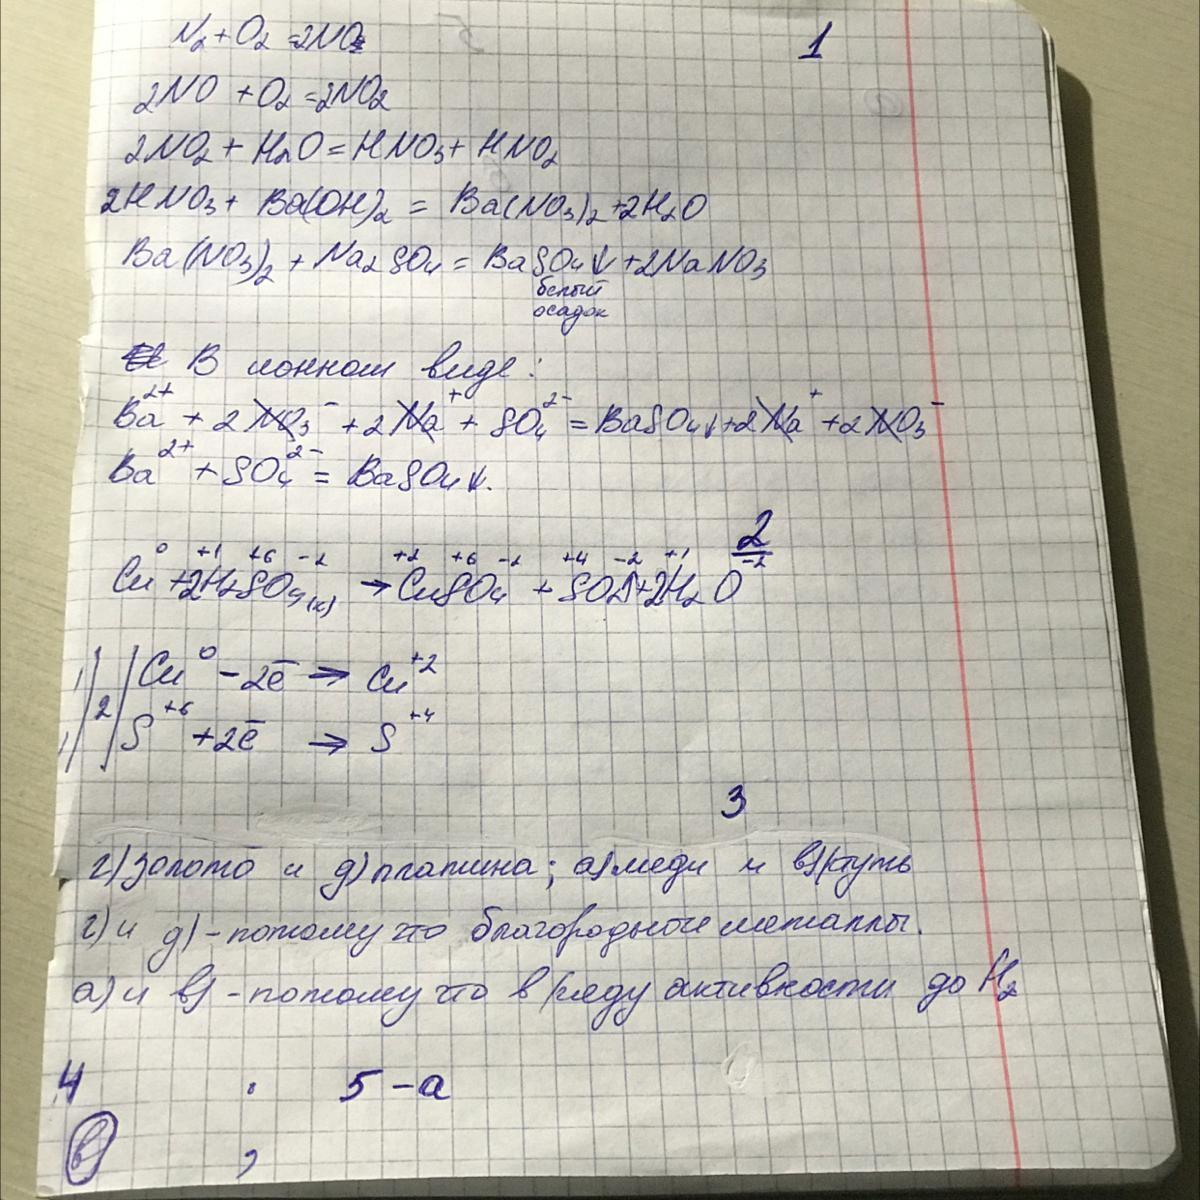 1
N₂ + O₂ = 2NO
2NO + O₂ = 2NO₂
2NO₂ + H₂O = HNO₃ + HNO₂
2HNO₃ + Ba(OH)₂ = Ba(NO₃)₂ + 2H₂O
Ba(NO₃)₂ + Na₂SO₄ = BaSO₄↓ + 2NaNO₃
белый
осадок
В ионном виде:
Ba²⁺ + 2NO₃⁻ + 2Na⁺ + SO₄²⁻ = BaSO₄↓ + 2Na⁺ + 2NO₃⁻
Ba²⁺ + SO₄²⁻ = BaSO₄↓.
2
0 +1 +6 -2 +2 +6 -2 +4 -2 +1 -2
Cu + 2H₂SO₄(к) → CuSO₄ + SO₂↑ + 2H₂O
1 | 2 | Cu⁰ - 2ē → Cu⁺²
1 | S⁺⁶ + 2ē → S⁺⁴
3
г) золото и д) платина; а) меди и в) ртуть
г) и д) - потому что благородные металлы.
а) и в) - потому что в ряду активности до H₂
4 5 - а
в